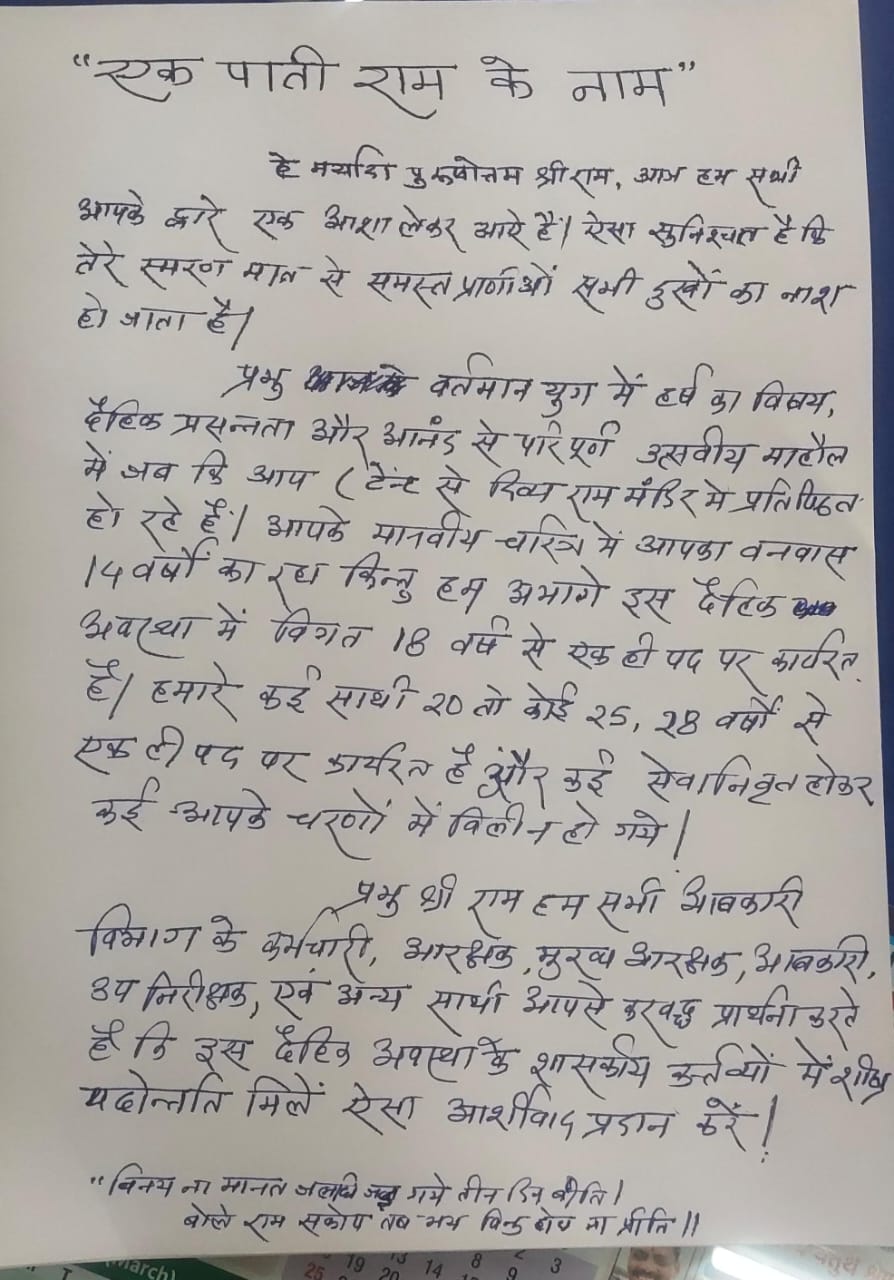 "एक पाती राम के नाम"
हे मर्यादा पुरूषोत्तम श्री राम, आज हम सभी
आपके द्वारे एक आशा लेकर आये हैं। ऐसा सुनिश्चत है कि
तेरे स्मरण मात्र से समस्त प्राणीओं सभी दुखों का नाश
हो जाता है।
प्रभु वर्तमान युग में हर्ष का विषय,
दैहिक प्रसन्नता और आनंद से परिपूर्ण उत्सवीय माहौल
में जब कि आप (टेंन्ट से दिव्य राम मंदिर मे प्रतिष्ठित
हो रहे हैं। आपके मानवीय चरित्र में आपका वनवास
14 वर्षों का रहा किन्तु हम अभागे इस दैहिक
अवस्था में विगत 18 वर्ष से एक ही पद पर कार्यरत
हैं। हमारे कई साथी 20 तो कोई 25, 28 वर्षों से
एक ही पद पर कार्यरत है और कई सेवानिवृत होकर
कई आपके चरणों में विलीन हो गये।
प्रभु श्री राम हम सभी आबकारी
विभाग के कर्मचारी, आरक्षक, मुख्य आरक्षक, आबकारी,
उप निरीक्षक, एवं अन्य साथी आपसे करबद्ध प्रार्थना करते
है कि इस दैहिक अवस्था के शासकीय कर्तव्यों में शीघ्र
पदोन्नति मिलें ऐसा आर्शीवाद प्रदान करें!
"विनय ना मानत जलधि जड़ गये तीन दिन बीति।
बोले राम सकोप तब भय बिनु होय ना प्रीति॥
March)
19 13 8 2
25 20 14 9 3
चतुर्थ